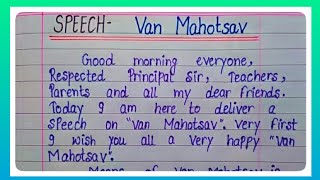 SPEECH- Van Mahotsav
Good morning everyone,
Respected Principal Sir, Teachers,
Parents and all my dear friends.
Today I am here to deliver a
speech on "Van Mahotsav". Very first
I wish you all a very happy "Van
Mahotsav".
Means of Van Mahotsav is